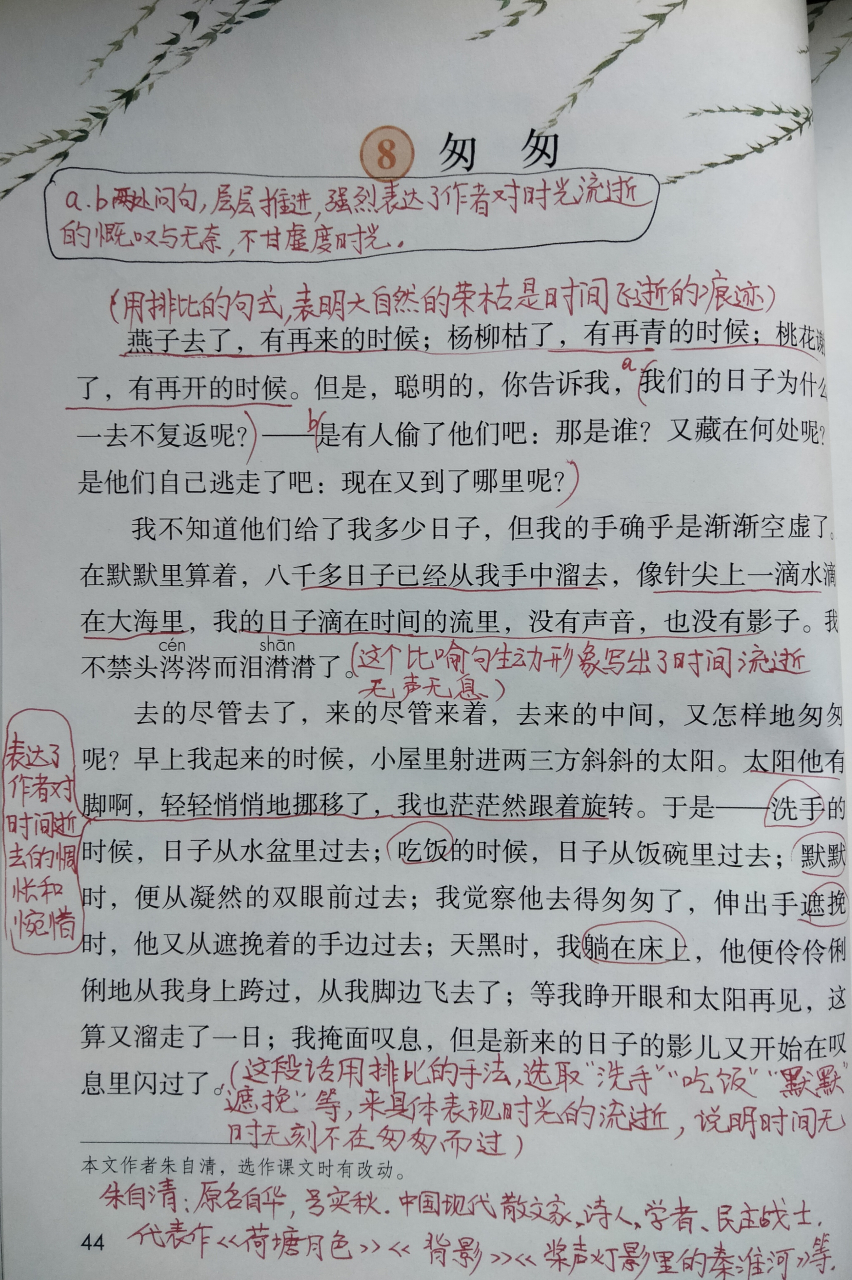 8 匆 匆
a.b两处问句,层层推进,强烈表达了作者对时光流逝
的慨叹与无奈,不甘虚度时光.
(用排比的句式,表明大自然的荣枯是时间飞逝的痕迹)
燕子去了，有再来的时候；杨柳枯了，有再青的时候；桃花谢
a
了，有再开的时候。但是，聪明的，你告诉我，(我们的日子为什么
b
一去不复返呢？)——(是有人偷了他们吧：那是谁？又藏在何处呢？
是他们自己逃走了吧：现在又到了哪里呢？)
我不知道他们给了我多少日子，但我的手确乎是渐渐空虚了。
在默默里算着，八千多日子已经从我手中溜去，像针尖上一滴水滴
在大海里，我的日子滴在时间的流里，没有声音，也没有影子。我
cén shān
不禁头涔涔而泪潸潸了。(这个比喻句生动形象写出了时间流逝
无声无息)
去的尽管去了，来的尽管来着，去来的中间，又怎样地匆匆
呢？早上我起来的时候，小屋里射进两三方斜斜的太阳。太阳他有
脚啊，轻轻悄悄地挪移了，我也茫茫然跟着旋转。于是——洗手的
时候，日子从水盆里过去；吃饭的时候，日子从饭碗里过去；默默
时，便从凝然的双眼前过去；我觉察他去得匆匆了，伸出手遮挽
时，他又从遮挽着的手边过去；天黑时，我躺在床上，他便伶伶俐
俐地从我身上跨过，从我脚边飞去了；等我睁开眼和太阳再见，这
算又溜走了一日；我掩面叹息，但是新来的日子的影儿又开始在叹
息里闪过了。(这段话用排比的手法,选取"洗手""吃饭""默默"
遮挽"等,来具体表现时光的流逝,说明时间无
时无刻不在匆匆而过)
表达了
作者对
时间逝
去的惆
怅和
惋惜
本文作者朱自清，选作课文时有改动。
朱自清:原名自华,号实秋.中国现代散文家、诗人、学者、民主战士.
44 代表作<<荷塘月色>><<背影>><<桨声灯影里的秦淮河>>等.